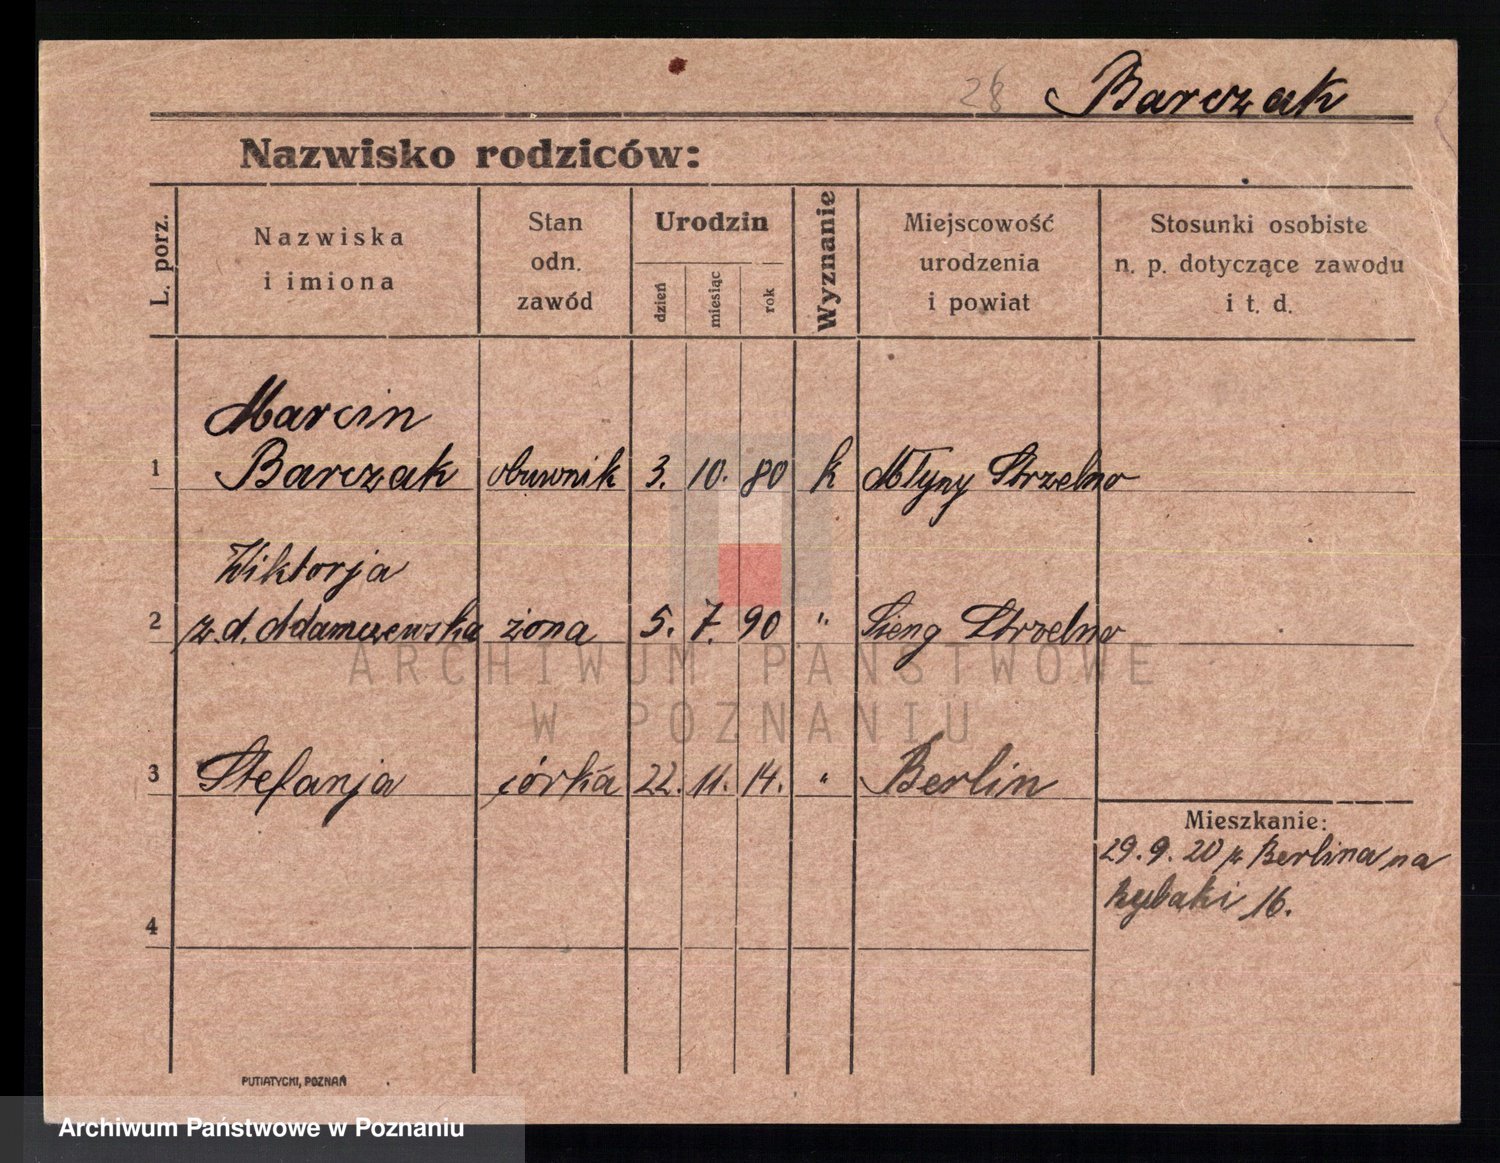 28 Barczak
Nazwisko rodziców:
L. porz.
Nazwiska
i imiona
Stan
odn.
zawód
Urodzin
dzień
miesiąc
rok
Wyznanie
Miejscowość
urodzenia
i powiat
Stosunki osobiste
n. p. dotyczące zawodu
i t. d.
Marcin
1 Barczak obuwnik 3. 10. 80 k Młyny Strzelno
Wiktorja
2 z. d. Adamczewska żona 5. 7. 90 " Sieng Strzelno
3 Stefanja córka 22. 11. 14. " Berlin
Mieszkanie:
29. 9. 20 z Berlina na
Rybaki 16.
4
ARCHIWUM PAŃSTWOWE
W POZNANIU
PUTIATYCKI, POZNAŃ
Archiwum Państwowe w Poznaniu